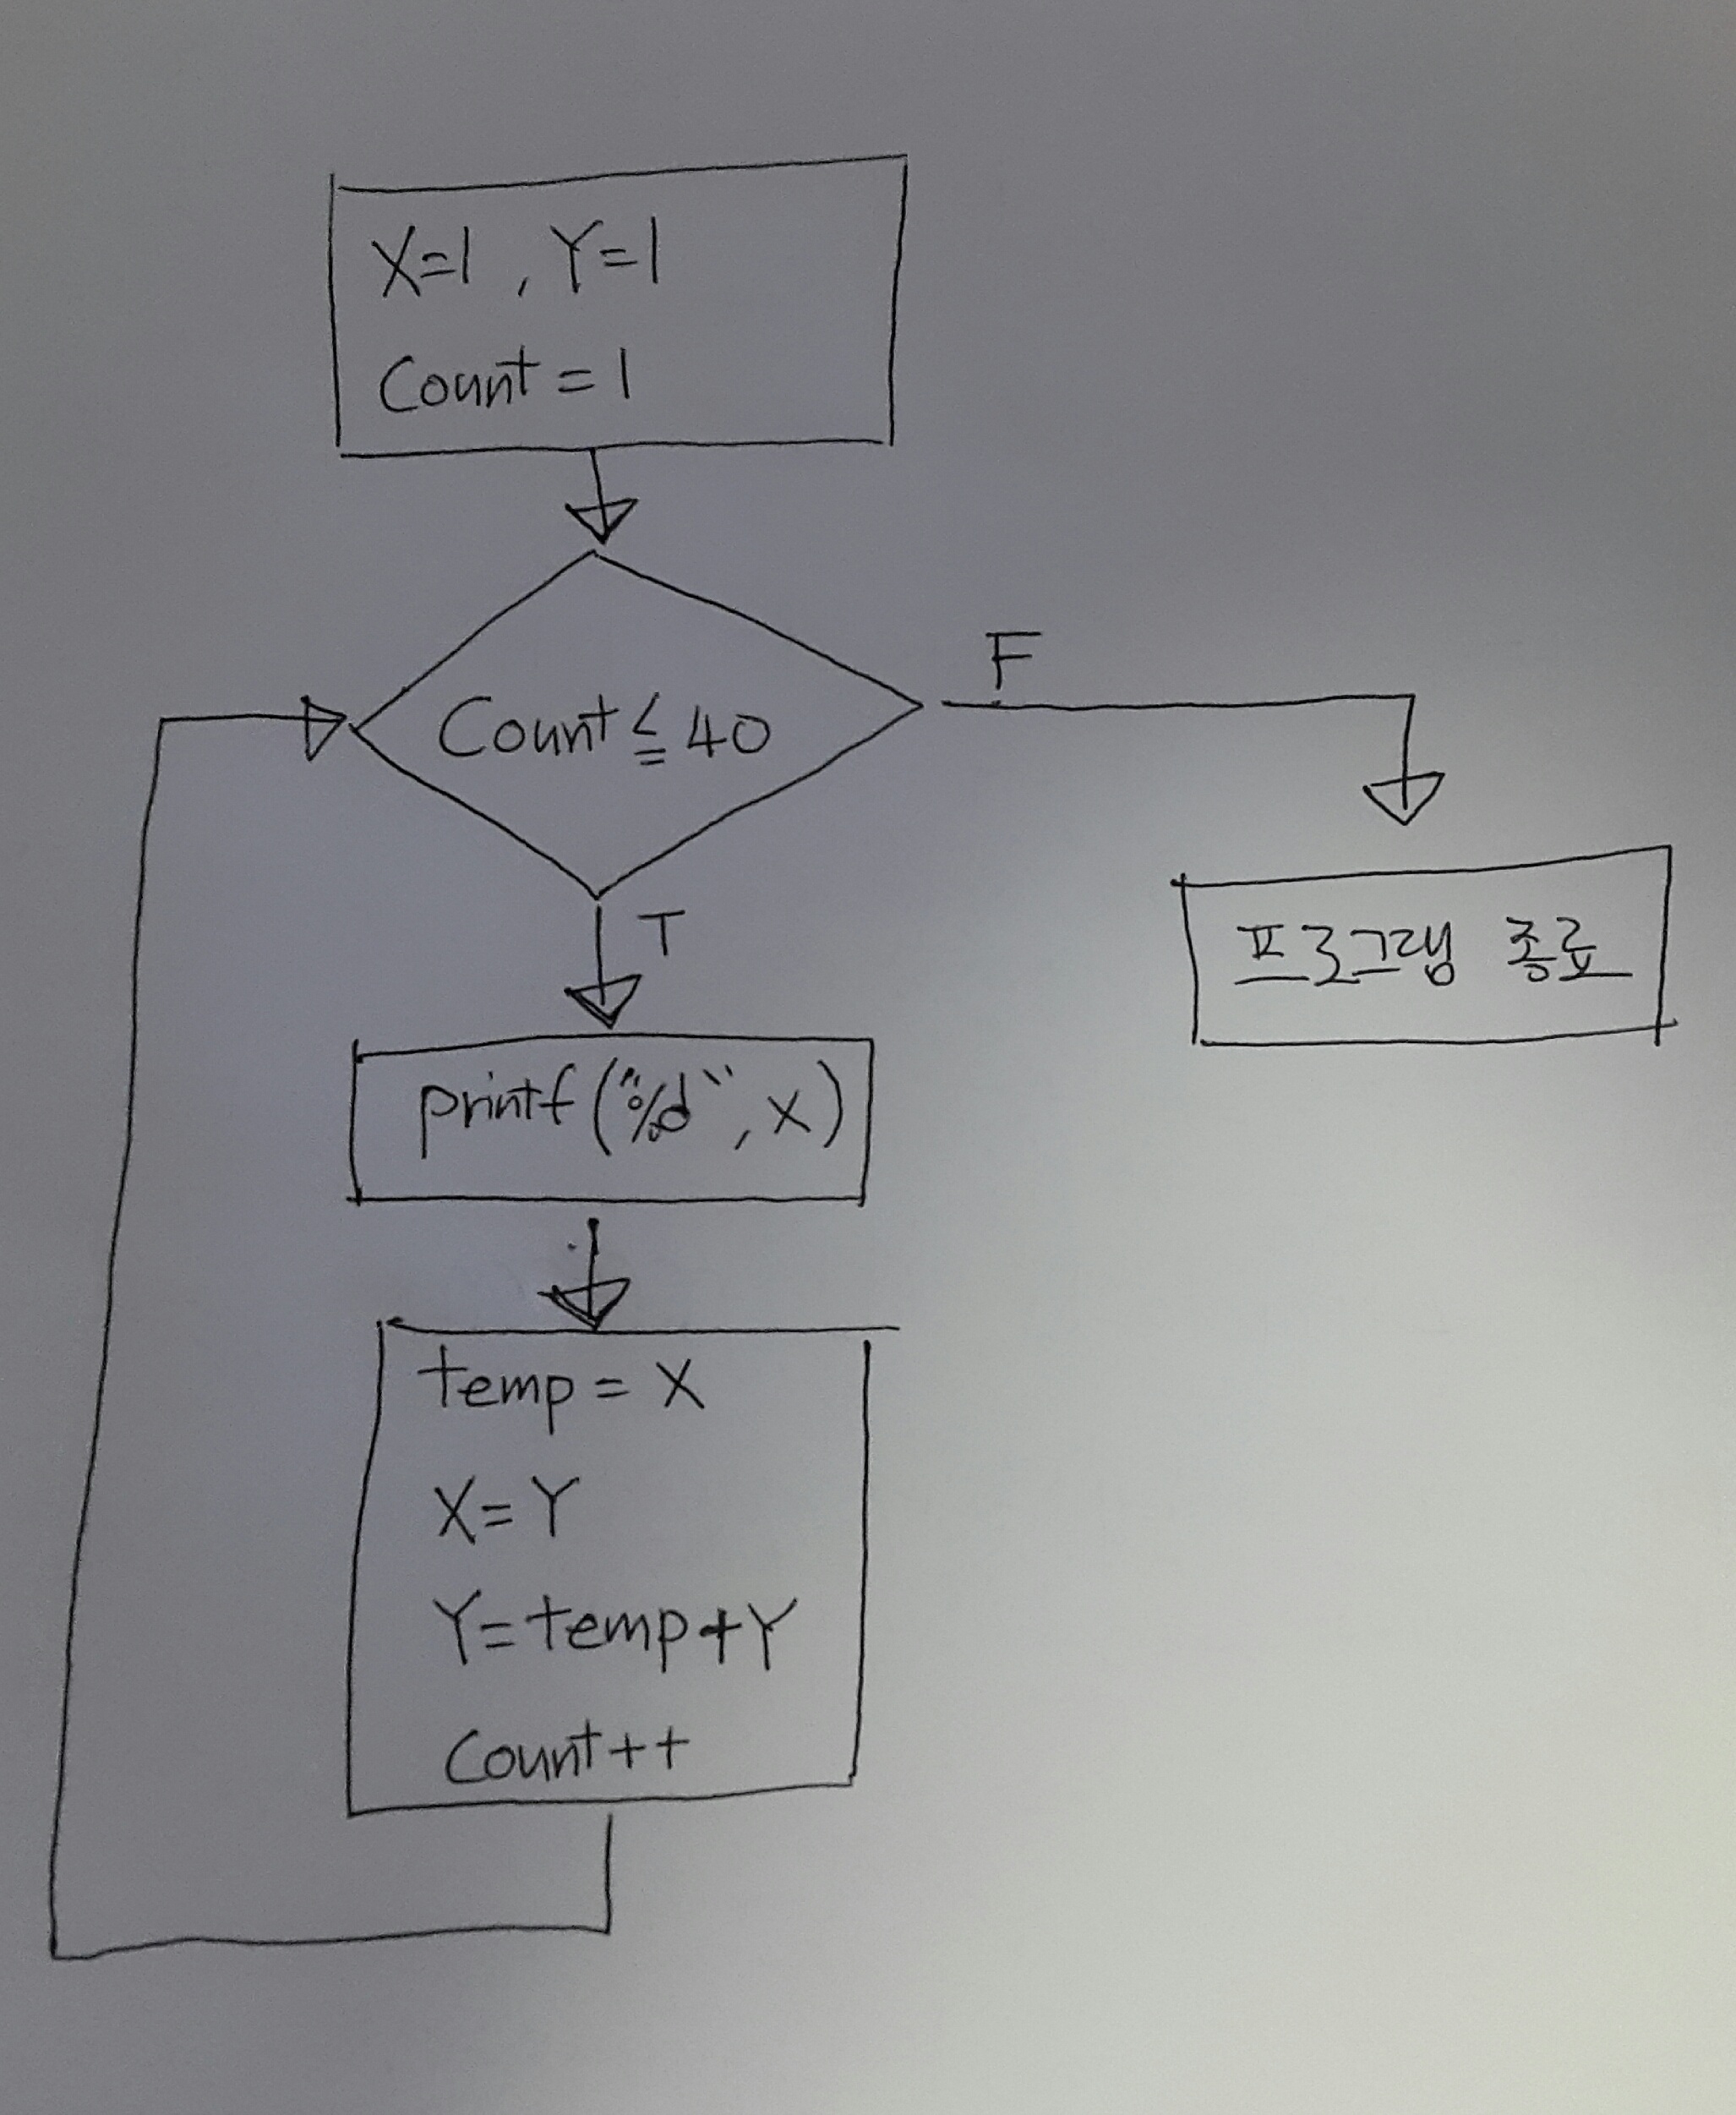 X=1 , Y=1
Count = 1
Count ≦ 40
F
T
프로그램 종료
printf("%d", X)
temp = X
X=Y
Y=temp+Y
Count++